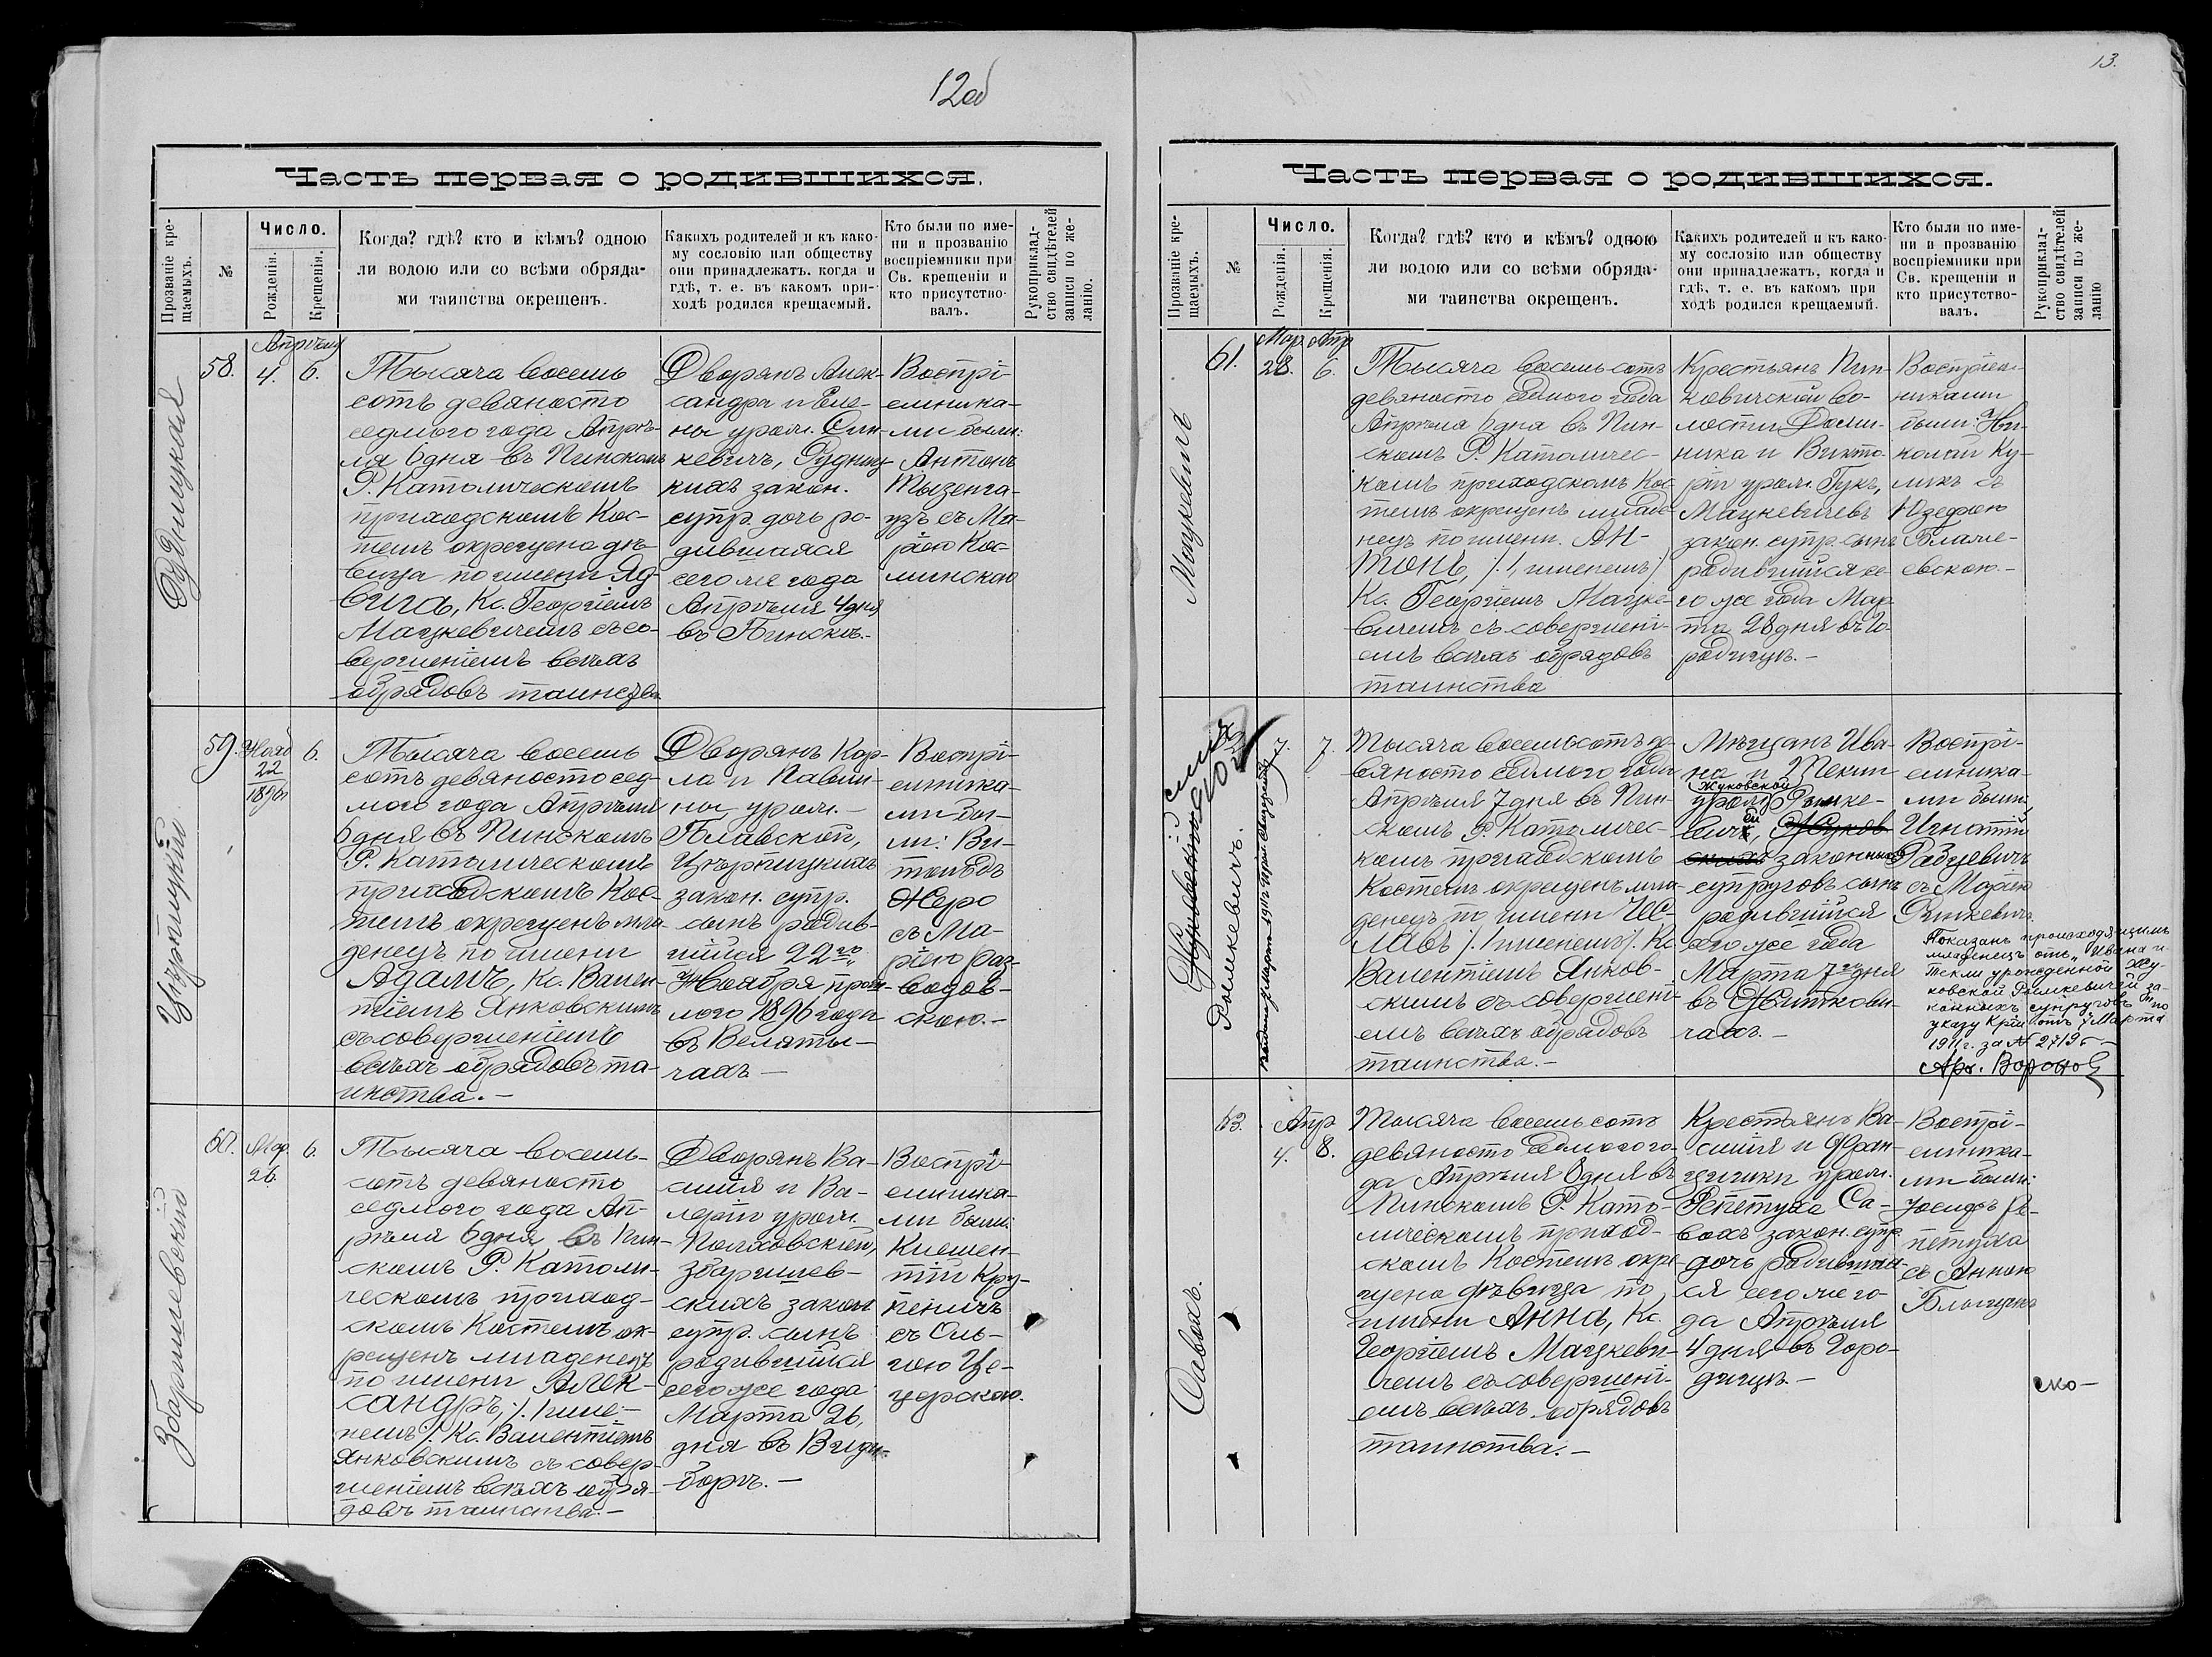 12об
Часть первая о родившихся.
Прозваніе кре-
щаемыхъ.
№
Число.
Рожденія.
Крещенія.
Когда? гдѣ? кто и кѣмъ? одною
ли водою или со всѣми обряда-
ми таинства окрещенъ.
Какихъ родителей и къ како-
му сословію или обществу
они принадлежатъ. когда и
гдѣ, т. е. въ какомъ при-
ходѣ родился крещаемый.
Кто были по име-
ни и прозванію
воспріемники при
Св. крещеніи и
кто присутство-
валъ.
Рукоприклад-
ство свидѣтелей
записи по же-
ланію.
58.
Апрѣля
4. 6.
Тысяча восемь
сотъ девяносто
седмого года Апрѣ-
ля 6 дня въ Пинскомъ
Р. Католическомъ
приходскомъ Кос-
телѣ окрещена дѣ-
вица по имени Яд-
вига, Кс. Георгіемъ
Мацкевичемъ съ со-
вершеніемъ всѣхъ
обрядовъ таинства
Дворянъ Алек-
сандра и Еле-
ны урож.
кихъ закон.
супр. дочь ро-
дившаяся
сего же года
Апрѣля 4 дня
въ Пинскѣ.-
Воспрі-
емника-
ми были:
Антонъ
Тызенга-
узъ съ Ма-
ріею Кос-
минскою
59.
Нояб
22
1896
6.
Тысяча восемь
сотъ девяносто сед-
мого года Апрѣля
6 дня въ Пинскомъ
Р. Католическомъ
приходскомъ Кос-
телѣ окрещенъ мла-
денецъ по имени
Адамъ, Кс. Вален-
тіемъ Янковскимъ
съ совершеніемъ
всѣхъ обрядовъ та-
инства.-
Дворянъ Кар-
ла и Павли-
ны урож.-
закон. супр.
сынъ родив-
шійся 22го
Ноября прош-
лого 1896 года
въ Веляты-
чахъ-
Воспрі-
емника-
ми бы-
ли: Ви-
тольдъ
Жеро
съ Ма-
ріею Раз-
водов-
скою.-
Збаршевскій
60.
Мар.
26
6.
Тысяча восемь-
сотъ девяносто
седмого года Ап-
рѣля 6 дня въ Пин-
скомъ Р. Католи-
ческомъ приход-
скомъ Костелѣ ок-
рещенъ младенецъ
по имени Алек-
сандръ, /. 1 име-
немъ /. Кс. Валентіемъ
Янковскимъ съ совер-
шеніемъ всѣхъ обря-
довъ таинства.-
Дворянъ Ва-
силія и Ва-
леріи урож.
Поляховской,
Збаршев-
скихъ закон
супр. сынъ
родившійся
сего же года
Марта 26
дня въ Види-
борѣ.-
Воспрі-
емника-
ми были:
Клемен-
тій Кру-
пеничъ
съ Оль-
гою Це-
церскою.
13.
Часть первая о родившихся.
Прозваніе кре-
щаемыхъ.
№
Число.
Рожденія.
Крещенія.
Когда? гдѣ? кто и кѣмъ? одною
ли водою или со всѣми обряда-
ми таинства окрещенъ.
Какихъ родителей и къ како-
му сословію или обществу
они принадлежатъ, когда и
гдѣ, т. е. въ какомъ при
ходѣ родился крещаемый.
Кто были по име-
ни и прозванію
воспріемники при
Св. крещеніи и
кто присутство-
валъ.
Рукоприклад-
ство свидѣтелей
записи по же-
ланію
Мацкевичъ
61.
Мар. Апр
28. 6.
Тысяча восемь сотъ
девяносто седмого года
Апрѣля 6 дня въ Пин-
скомъ Р. Католичес-
комъ приходскомъ Кос
телѣ окрещенъ младе-
нецъ по имени. Ан-
тонъ, /. 1 именемъ /
Кс. Георгіемъ Мацке-
вичемъ съ совершені-
емъ всѣхъ обрядовъ
таинства
Крестьянъ Пин-
ковичской во-
лости Доми-
ника и Викто-
ріи урож. Гукъ,
Мацкевичевъ
закон. супр. сынъ
родившійся се-
го же года Мар
та 28 дня въ Го-
родищѣ.-
Воспріем-
никами
были: Ни-
колай Ку-
ликъ съ
Юзефою
евскою.-
Жуковскій
Рымкевичъ.
7. 7.
Тысяча восемьсотъ де-
вяносто седмого года
Апрѣля 7 дня въ Пин-
скомъ Р. Католичес-
комъ приходскомъ
Костелѣ окрещенъ мла-
денецъ по имени
/. 1 именемъ /. Кс.
Валентіемъ Янков-
скимъ съ совершені-
емъ всѣхъ обрядовъ
таинства.-
Мѣщанъ Ива-
на и Теклии
Жуковской
урож. Рымке-
вичей, Жуков
скихъ законныхъ
супруговъ сынъ
родившійся
сего же года
Марта 7го дня
въ Житкови-
чахъ.-
Воспрі-
емника-
ми были:
Игнатій
Радцевичъ
съ Маріею
Рымкевичъ.
Показанъ происходящимъ
младенецъ отъ „Ивана и
Текли урожденной Жу-
ковской Рымкевичей за-
конныхъ супруговъ" по
указу Кріи отъ 7 Марта
1911 г. за № 2719-
Арх. Вороно
63.
Апр
4. 8.
Тысяча восемьсотъ
девяносто седмого го-
да Апрѣля 8 дня въ
Пинскомъ Р. Като-
лическомъ приход-
скомъ Костелѣ окре-
щена дѣвица по
имени Анна, Кс.
Георгіемъ Мацкеви-
чемъ съ совершені-
емъ всѣхъ обрядовъ
таинства.-
Крестьянъ Ва-
силія и Фран-
цишки урож.
Репетуха Са-
вохъ закон. супр.
дочь родившая-
ся сего же го-
да Апрѣля
4 дня въ Горо-
дищѣ.-
Воспрі-
емника-
ми были:
Іосифъ Ре-
петуха
съ Анною
ско-